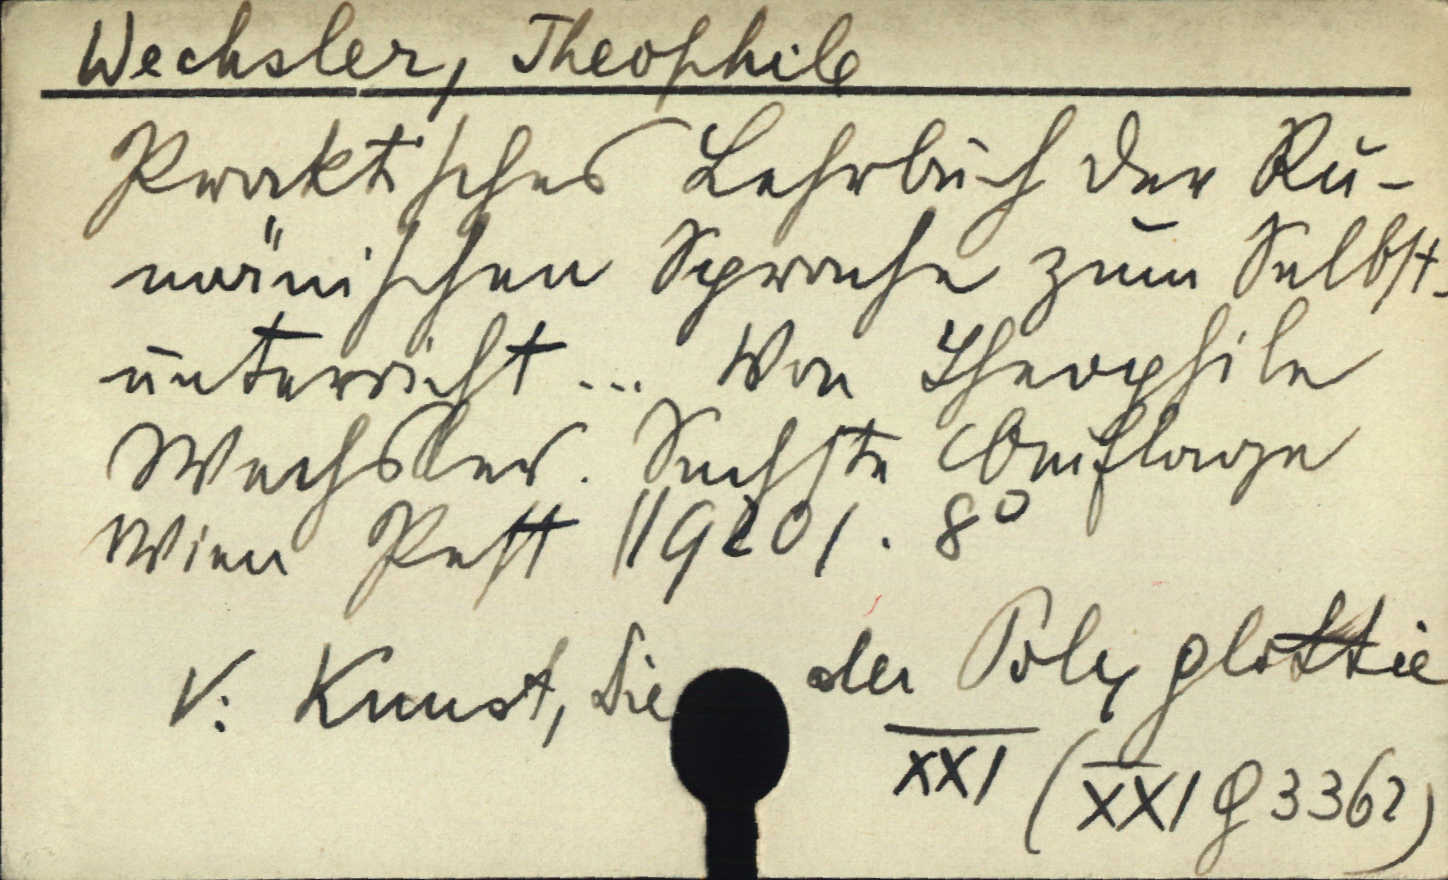 Wechsler, Theophile
Praktisches Lehrbuch der Ru-
mänischen Sprache zum Selbst-
unterricht ... Von Theophile
Wechsler. Sechste Auflage
Wien Pest |1920|. 8°
V: Kunst, Die der Polyglottie
XXI (XXI 3362)